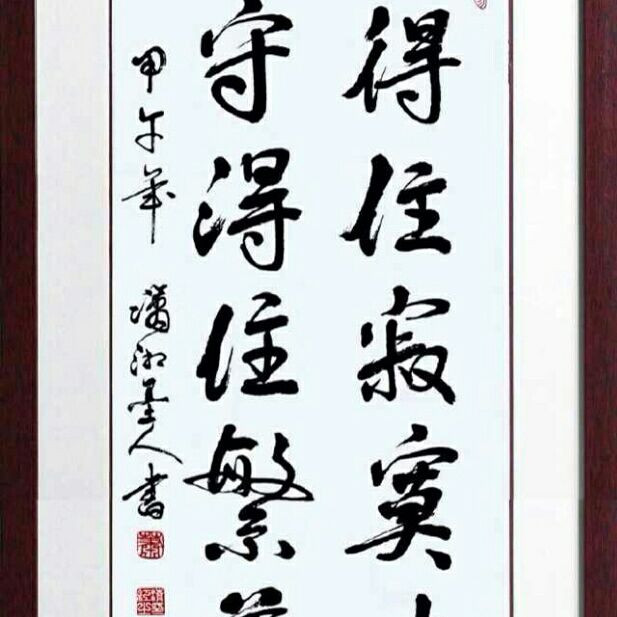 得住寂寞
守得住繁
甲午年 瀟湘墨人書